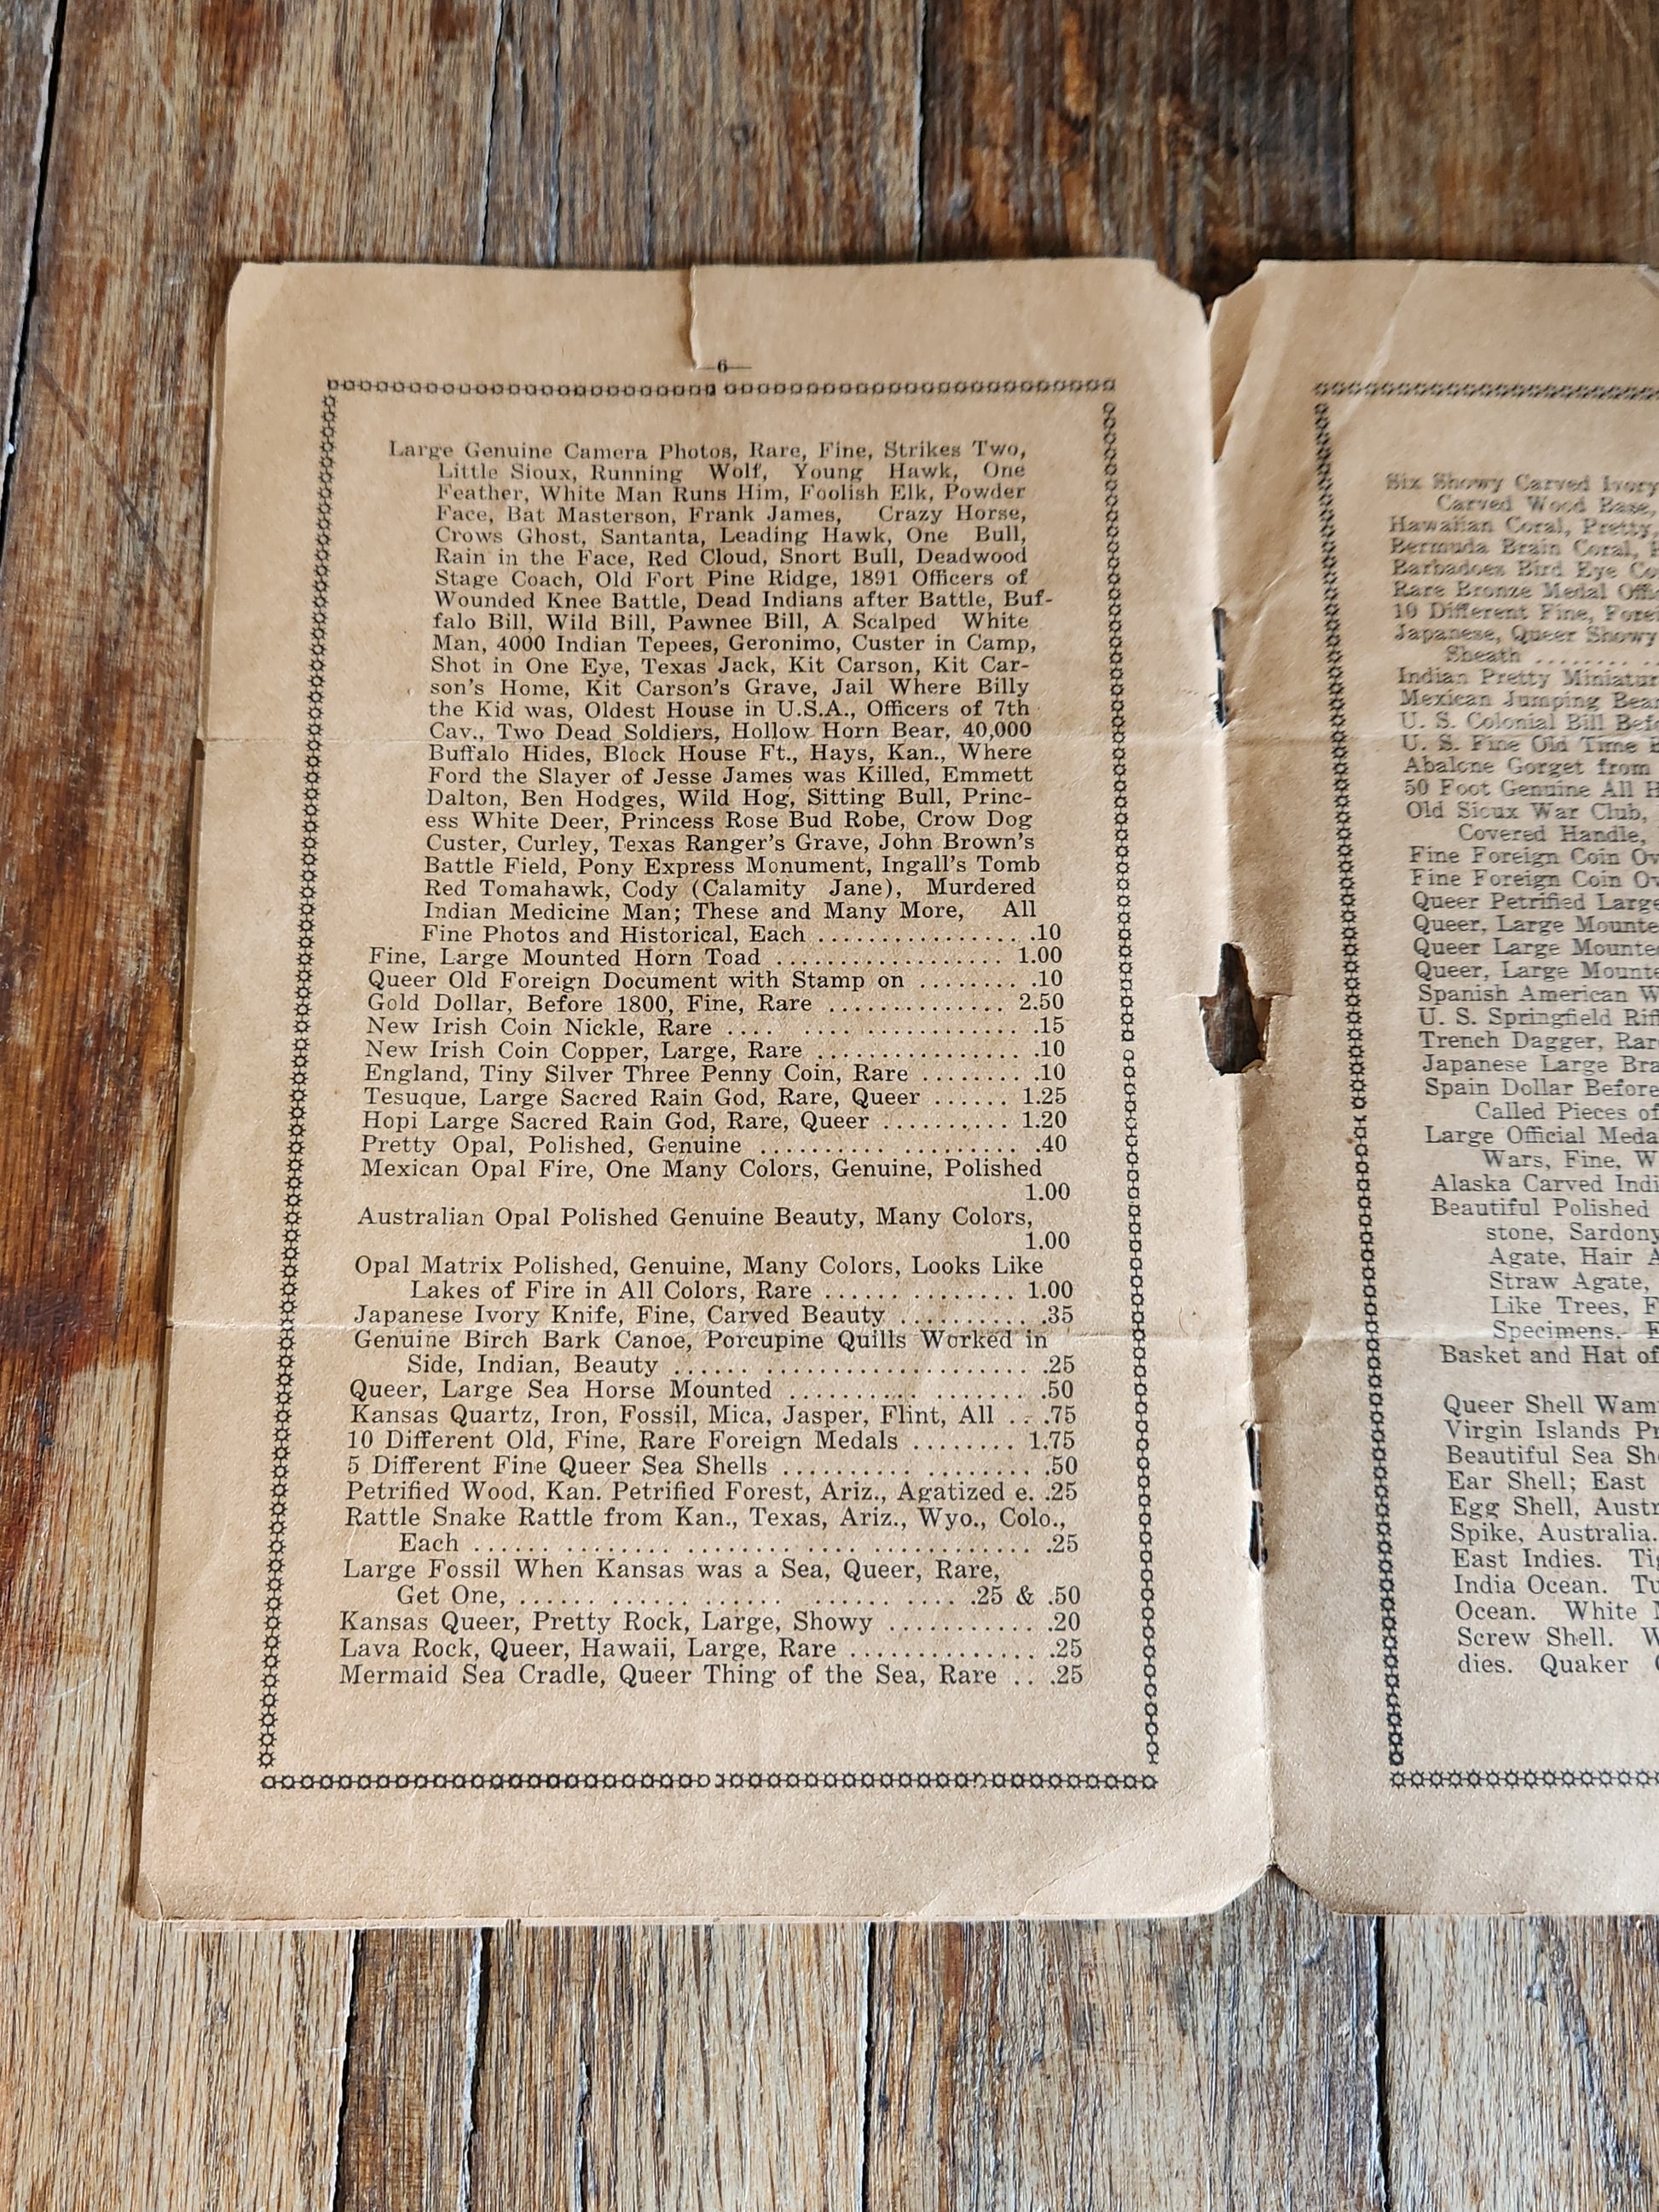 —6—
Large Genuine Camera Photos, Rare, Fine, Strikes Two,
Little Sioux, Running Wolf, Young Hawk, One
Feather, White Man Runs Him, Foolish Elk, Powder
Face, Bat Masterson, Frank James, Crazy Horse,
Crows Ghost, Santanta, Leading Hawk, One Bull,
Rain in the Face, Red Cloud, Snort Bull, Deadwood
Stage Coach, Old Fort Pine Ridge, 1891 Officers of
Wounded Knee Battle, Dead Indians after Battle, Buf-
falo Bill, Wild Bill, Pawnee Bill, A Scalped White
Man, 4000 Indian Tepees, Geronimo, Custer in Camp,
Shot in One Eye, Texas Jack, Kit Carson, Kit Car-
son's Home, Kit Carson's Grave, Jail Where Billy
the Kid was, Oldest House in U.S.A., Officers of 7th
Cav., Two Dead Soldiers, Hollow Horn Bear, 40,000
Buffalo Hides, Block House Ft., Hays, Kan., Where
Ford the Slayer of Jesse James was Killed, Emmett
Dalton, Ben Hodges, Wild Hog, Sitting Bull, Princ-
ess White Deer, Princess Rose Bud Robe, Crow Dog
Custer, Curley, Texas Ranger's Grave, John Brown's
Battle Field, Pony Express Monument, Ingall's Tomb
Red Tomahawk, Cody (Calamity Jane), Murdered
Indian Medicine Man; These and Many More, All
Fine Photos and Historical, Each ................ .10
Fine, Large Mounted Horn Toad .................. 1.00
Queer Old Foreign Document with Stamp on ........ .10
Gold Dollar, Before 1800, Fine, Rare .............. 2.50
New Irish Coin Nickle, Rare .... ................ .15
New Irish Coin Copper, Large, Rare ................. .10
England, Tiny Silver Three Penny Coin, Rare ......... .10
Tesuque, Large Sacred Rain God, Rare, Queer ...... 1.25
Hopi Large Sacred Rain God, Rare, Queer .......... 1.20
Pretty Opal, Polished, Genuine ........... ......... .40
Mexican Opal Fire, One Many Colors, Genuine, Polished
1.00
Australian Opal Polished Genuine Beauty, Many Colors,
1.00
Opal Matrix Polished, Genuine, Many Colors, Looks Like
Lakes of Fire in All Colors, Rare ...... ........ 1.00
Japanese Ivory Knife, Fine, Carved Beauty ........... .35
Genuine Birch Bark Canoe, Porcupine Quills Worked in
Side, Indian, Beauty ...... ...................... .25
Queer, Large Sea Horse Mounted .......... ....... .50
Kansas Quartz, Iron, Fossil, Mica, Jasper, Flint, All ... .75
10 Different Old, Fine, Rare Foreign Medals ........ 1.75
5 Different Fine Queer Sea Shells .......... ......... .50
Petrified Wood, Kan. Petrified Forest, Ariz., Agatized e. .25
Rattle Snake Rattle from Kan., Texas, Ariz., Wyo., Colo.,
Each ...... ........ ........ .... ............. .25
Large Fossil When Kansas was a Sea, Queer, Rare,
Get One, ...... ...... ...... ...... .... .25 & .50
Kansas Queer, Pretty Rock, Large, Showy ............ .20
Lava Rock, Queer, Hawaii, Large, Rare .............. .25
Mermaid Sea Cradle, Queer Thing of the Sea, Rare .. .25
Six Showy Carved Ivory
Carved Wood Base,
Hawaiian Coral, Pretty,
Bermuda Brain Coral,
Barbadoes Bird Eye
Rare Bronze Medal
10 Different Fine,
Japanese, Queer Showy
Sheath ........ ..
Indian Pretty
Mexican Jumping
U. S. Colonial Bill
U. S. Fine Old Time
Abalone Gorget from
50 Foot Genuine All
Old Sioux War Club,
Covered Handle,
Fine Foreign Coin
Fine Foreign Coin
Queer Petrified Large
Queer, Large
Queer Large
Queer, Large
Spanish American
U. S. Springfield
Trench Dagger,
Japanese Large
Spain Dollar Before
Called Pieces of
Large Official
Wars, Fine,
Alaska Carved
Beautiful Polished
stone,
Agate, Hair
Straw Agate,
Like Trees,
Specimens.
Basket and Hat of
Queer Shell
Virgin Islands
Beautiful Sea
Ear Shell; East
Egg Shell,
Spike, Australia.
East Indies.
India Ocean.
Ocean. White
Screw Shell.
dies. Quaker